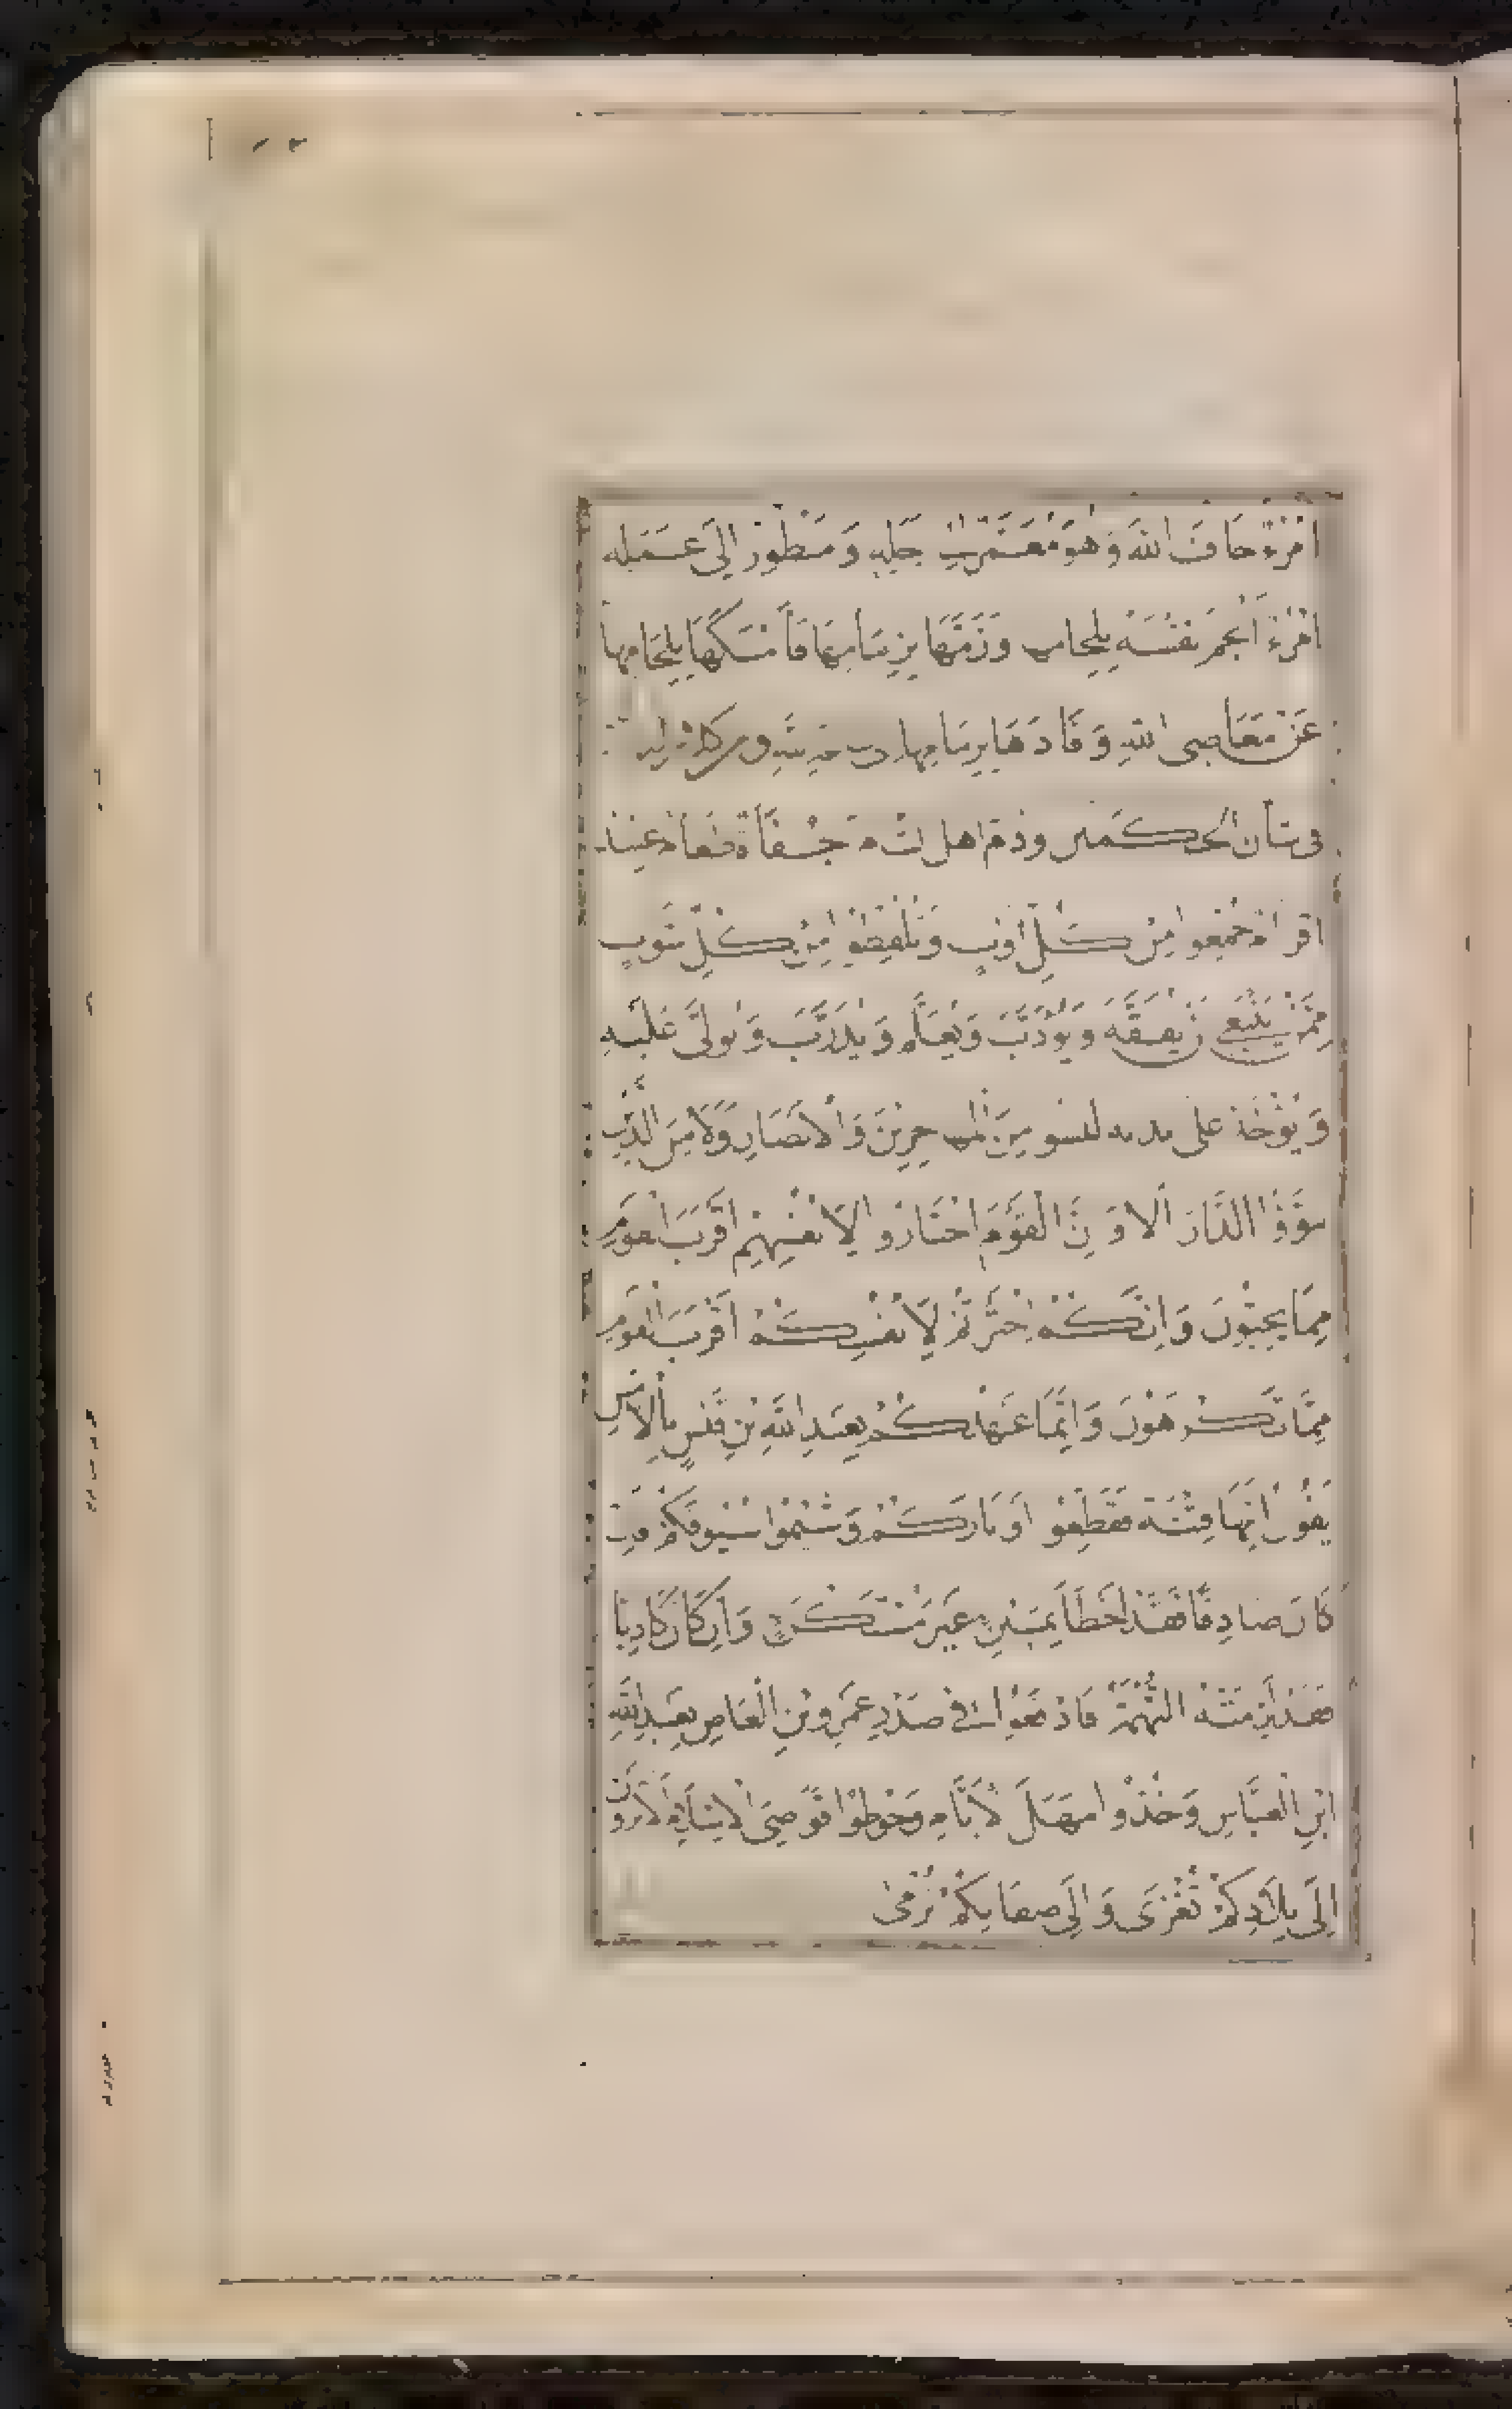 امْرُءٌ خَافَ اللهَ وَهُوَ مُعَمَّرٌ اِلى اَجَلِهِ وَمَنْظُورٌ اِلَى عَمَلِه
امْرُءٌ اَلْجَمَ نَفْسَهُ بِلِجَامِهَا وَزَمَّهَا بِزِمَامِهَا فَاَمْسَكَهَا بِلِجَامِهَا
عَنْ مَعَاصِى اللهِ وَقَادَهَا بِزِمَامِهَا
فى شان الحكمين وذم اهل الشام جُفَاةٌ طَغَامٌ عَبِيدٌ
اَقزامٌ جُمِعُوا مِنْ كُلِّ اَوْبٍ وَتُلُقِّطُوا مِنْ كُلِّ شَوْبٍ
مِمَّنْ يَنْبَغِى اَنْ يُفَقَّهَ وَيُؤَدَّبَ وَيُعَلَّمَ وَيُدَرَّبَ وَيُوَلَّى عَلَيْهِ
وَيُؤْخَذَ عَلى يديه ليسوا مِنَ المهاجِرِينَ وَالْاَنْصَارِ وَلَا مِنَ الَّذِينَ
تَبَوَّؤُا الدَّارَ اَلَا وَاِنَّ الْقَوْمَ اخْتَارُوا لِاَنْفُسِهِمْ اَقْرَبَ الْقَوْمِ
مِمَّا يُحِبُّونَ وَاِنَّكُمْ اخْتَرْتُمْ لِاَنْفُسِكُمْ اَقْرَبَ الْقَوْمِ
مِمَّا تَكْرَهُونَ وَاِنَّمَا عَهْدُكُمْ بِعَبْدِ اللهِ بْنِ قَيْسٍ بِالْاَمْسِ
يَقُولُ اِنَّهَا فِتْنَةٌ فَقَطِّعُوا اَوْتَارَكُمْ وَشِيمُوا سُيُوفَكُمْ فَاِنْ
كَانَ صَادِقًا فَقَدْ اَخْطَاَ بِمَسِيرِهِ غَيْرَ مُسْتَكْرَهٍ وَاِنْ كَانَ كَاذِبًا
فَقَدْ لَزِمَتْهُ التُّهَمَةُ فَادْفَعُوا فى صَدْرِ عَمْرِو بْنِ الْعَاصِ بِعَبْدِ اللهِ
ابْنِ الْعَبَّاسِ وَخُذُوا مَهَلَ الْاَيَّامِ وَحُوطُوا قَوَاصِىَ الْاِسْلَامِ اَلَا تَرَوْنَ
اِلَى بِلَادِكُمْ تُغْزَى وَاِلَى صَفَاتِكُمْ تُرْمى